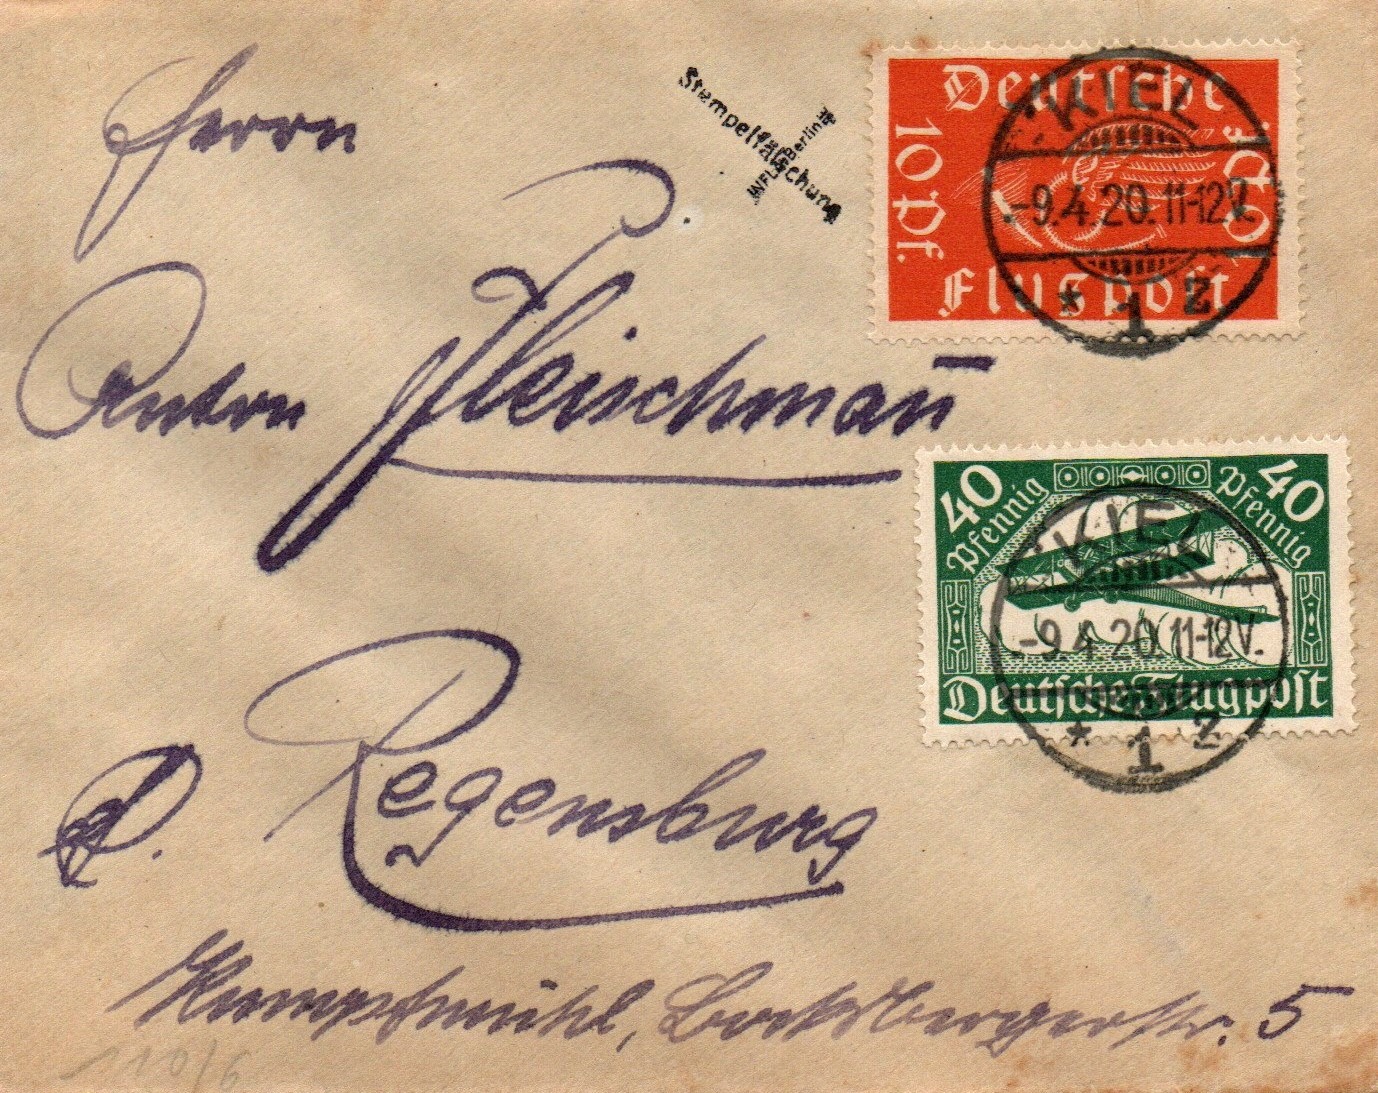 Herrn
Stempelfälschung
Berlin
Deutsche
10 Pf.
10 Pf.
Flugpost
KIEL
-9.4.20.11-12V.
* 1 z
Anton Fleischmañ
40 Pfennig
Pfennig 40
Deutsche Flugpost
KIEL
-9.4.20.11-12V.
* 1 z
Regensburg
5